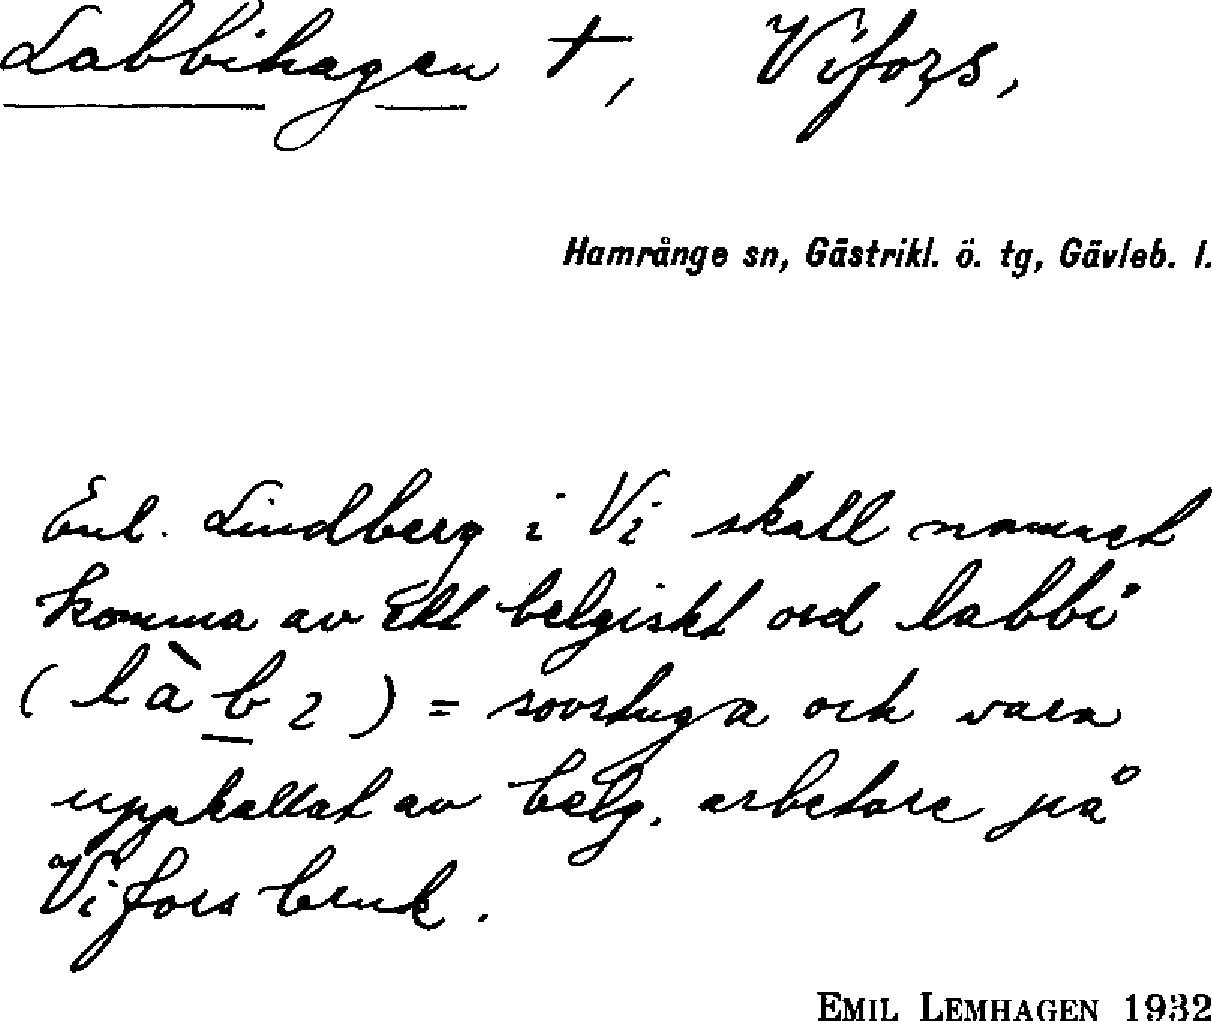 Labbihagen †, Vifors,
Hamrånge sn, Gästrikl. ö. tg, Gävleb. l.
Enl. Lindberg i Vi skall namnet
komma av ett belgiskt ord labbi
(làb2) = sovstuga och vara
uppkallat av belg. arbetare på
Vifors bruk.
EMIL LEMHAGEN 1932